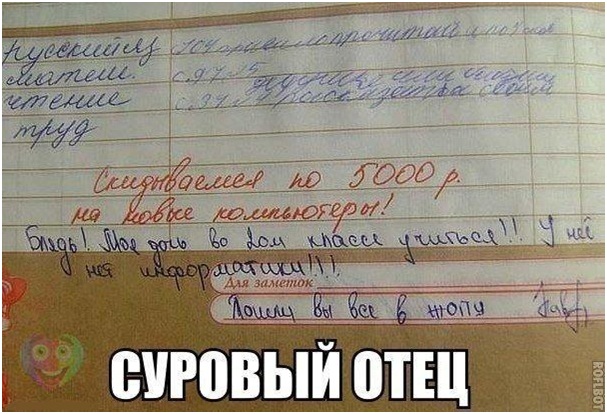 русский яз
матем. с. 97
чтение с. 39
труд
Скидываемся по 5000 р.
на новые компьютеры!
Блядь! Моя дочь во 2ом классе учиться!!! У неё
нет информатики!!!!
Для заметок
Пошли вы все в жопу
СУРОВЫЙ ОТЕЦ
ROFLBOT